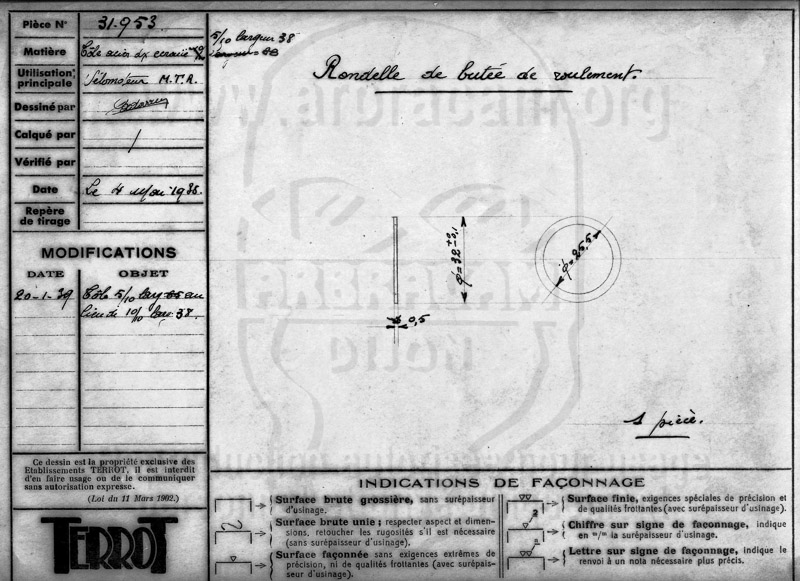 Pièce N° 31.953
Matière Tôle acier dx écroui
5/10 largeur 38
Utilisation principale Vélomoteur M.T.A.
Dessiné par
Calqué par /
Vérifié par
Date Le 4 Mai 1938.
Repère de tirage
MODIFICATIONS
DATE OBJET
20-1-39 Tôle 5/10 au
lieu de 10/10 38.
Ce dessin est la propriété exclusive des
Etablissements TERROT, il est interdit
d'en faire usage ou de le communiquer
sans autorisation expresse.
(Loi du 11 Mars 1902.)
TERROT
Rondelle de butée de roulement.
φ=32 +0 -0,1
φ=25,5
0,5
1 pièce.
www.arbracam.org
ARBRACAM
INDICATIONS DE FAÇONNAGE
Surface brute grossière, sans surépaisseur
d'usinage.
Surface brute unie; respecter aspect et dimen-
sions, retoucher les rugosités s'il est nécessaire
(sans surépaisseur d'usinage).
Surface façonnée sans exigences extrêmes de
précision, ni de qualités frottantes (avec surépais-
seur d'usinage).
Surface finie, exigences spéciales de précision et
de qualités frottantes (avec surépaisseur d'usinage).
2
Chiffre sur signe de façonnage, indique
en m/m la surépaisseur d'usinage.
a
Lettre sur signe de façonnage, indique le
renvoi à un nota nécessaire plus précis.